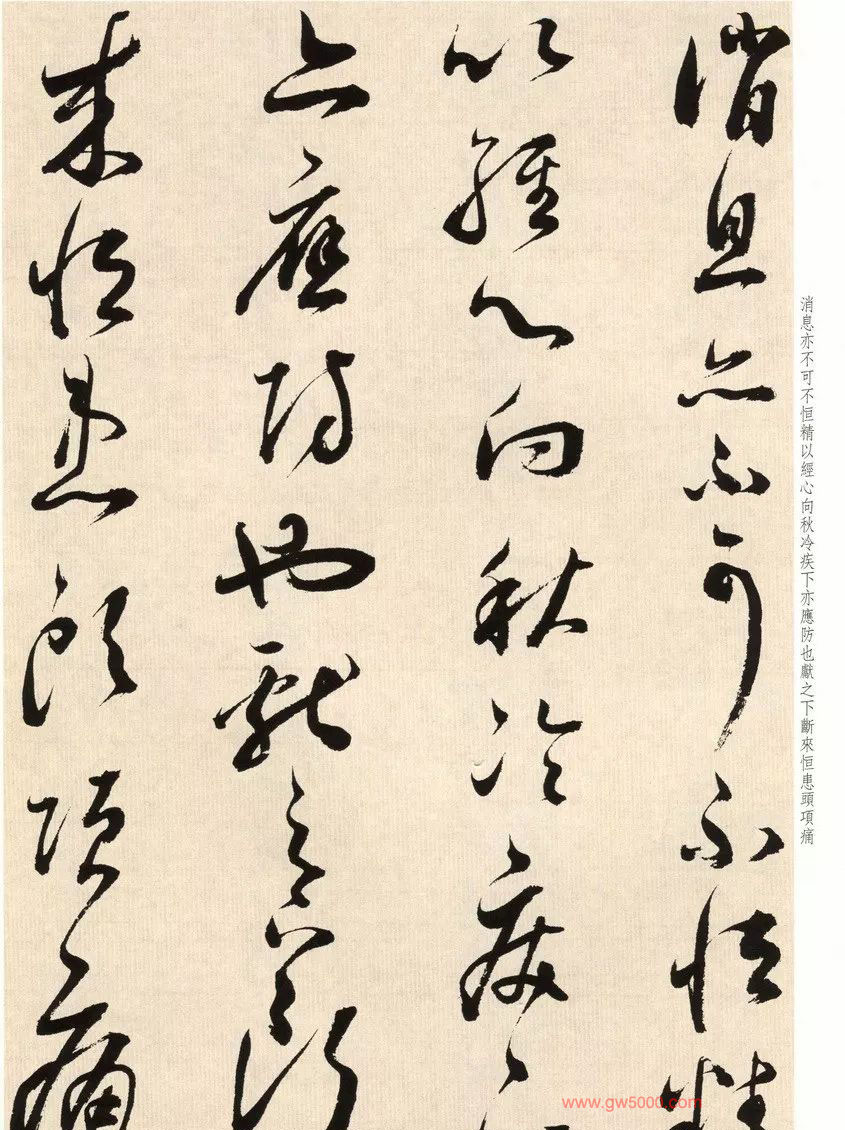 消息亦不可不恒精
以經心向秋冷疾下
亦應防也獻之下斷
來恒患頭項痛
消息亦不可不恒精以經心向秋冷疾下亦應防也獻之下斷來恒患頭項痛
www.gw5000.com